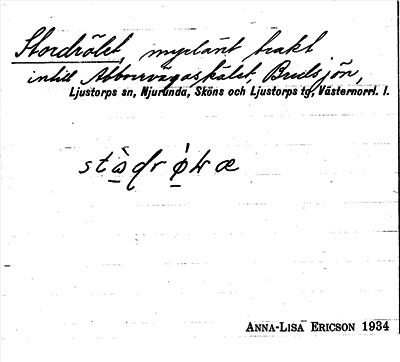 Stordrölet, myrlänt trakt
intill Abborrvägaskälet, Bredsjön,
Ljustorps sn, Njurunda, Sköns och Ljustorps tg, Västernorrl. l.
ANNA-LISA ERICSON 1934